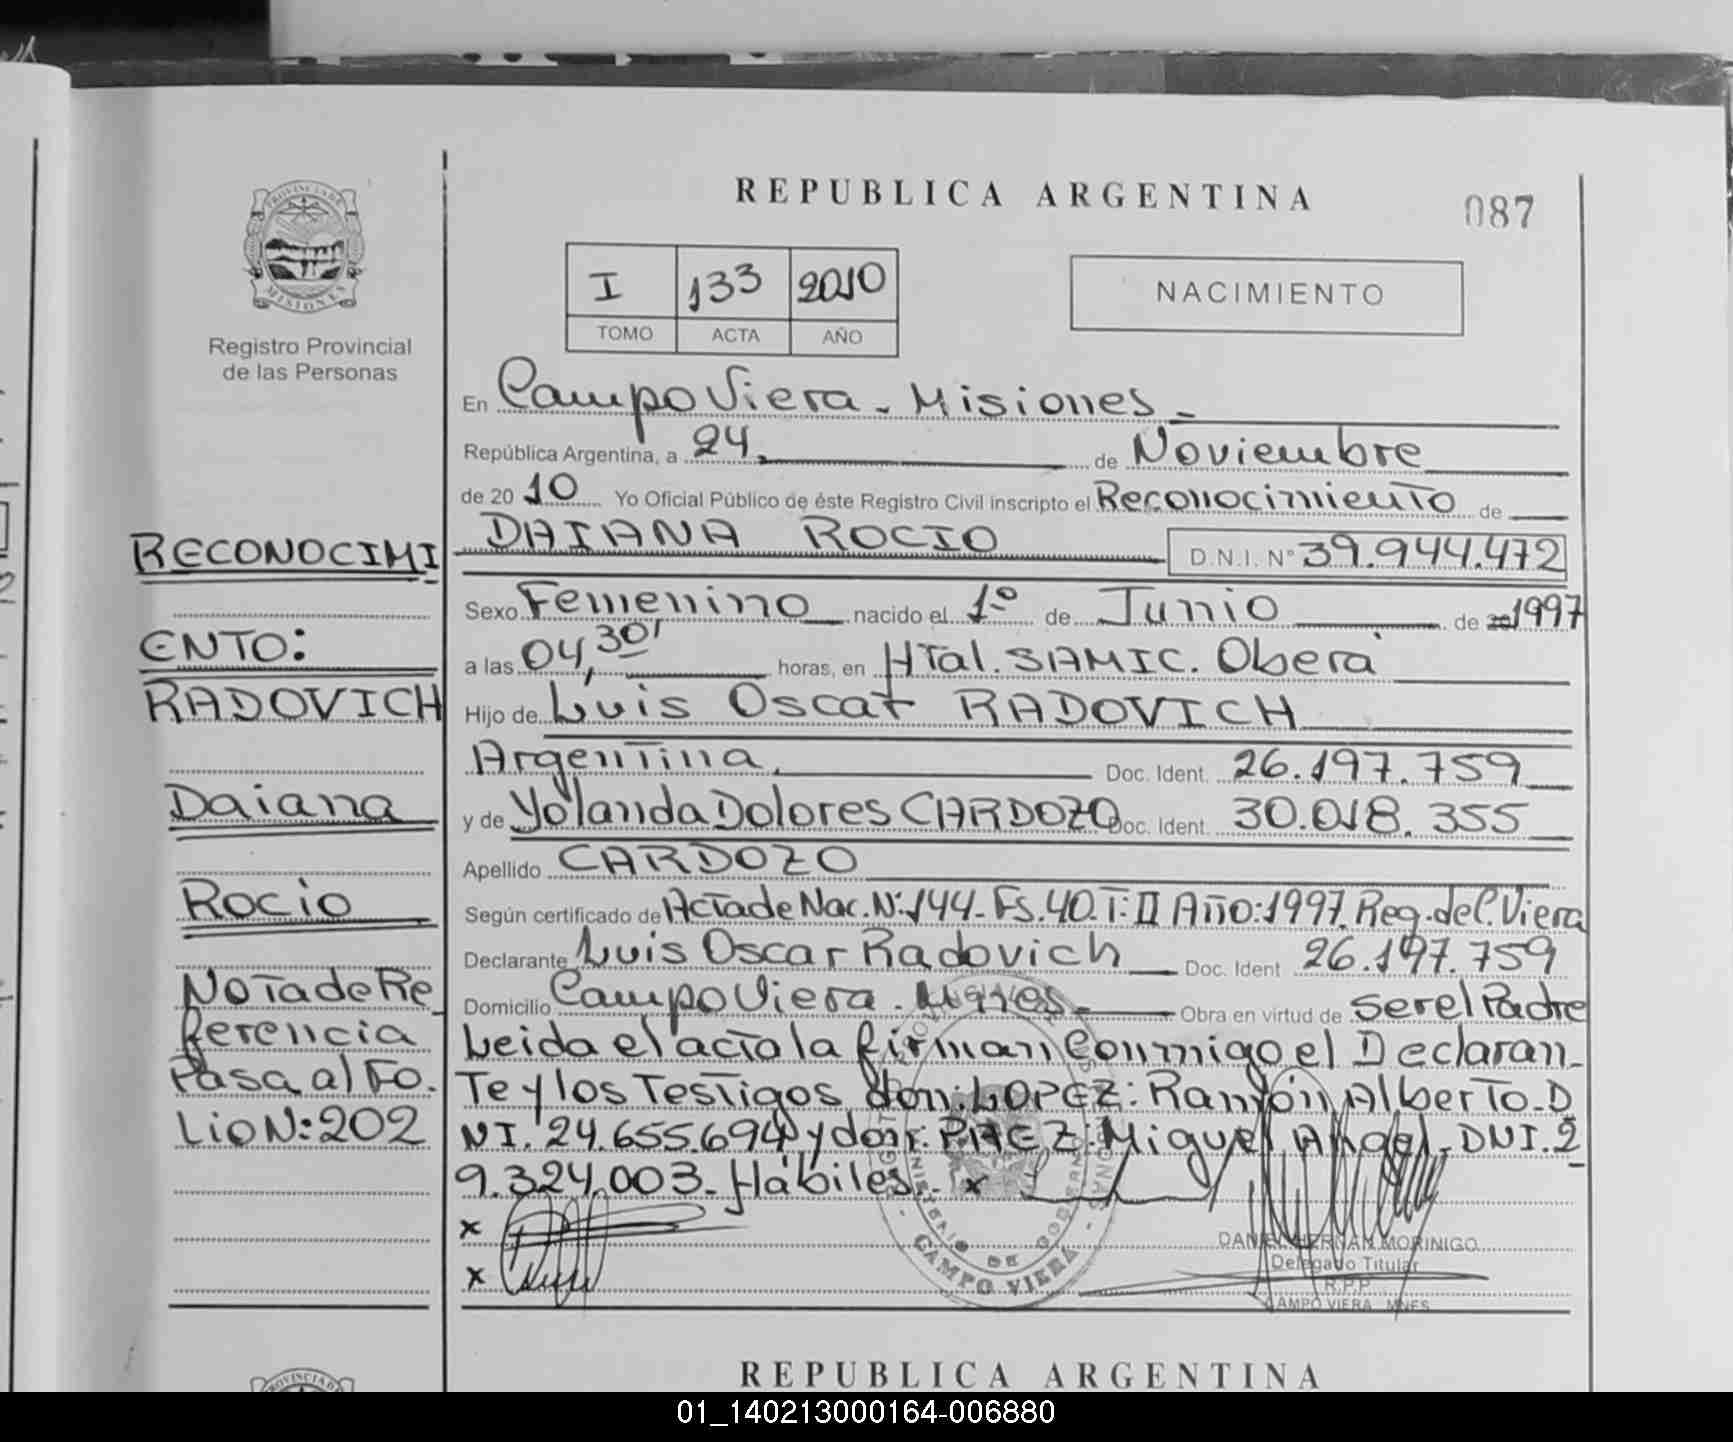 REPUBLICA ARGENTINA
087
PROVINCIA DE MISIONES
Registro Provincial
de las Personas
I 133 2010
TOMO ACTA AÑO
NACIMIENTO
En Campo Viera - Misiones -
República Argentina, a 24. de Noviembre
de 20 10 Yo Oficial Público de éste Registro Civil inscripto el Reconocimiento de
DAIANA ROCIO D.N.I. N° 39.944.472
Sexo Femenino nacido el 1º de Junio de 20 1997
a las 04,30' horas, en HTal. SAMIC. Oberá
Hijo de Luis Oscar RADOVICH
Argentina. Doc. Ident. 26.197.759
y de Yolanda Dolores CARDOZO Doc. Ident. 30.018.355
Apellido CARDOZO
Según certificado de Acta de Nac. N:144- Fs. 40. T: II Año:1997. Reg. del C. Viera
Declarante Luis Oscar Radovich Doc. Ident 26.197.759
Domicilio Campo Viera. Mnes - Obra en virtud de ser el Padre
Leida el acta la firman Conmigo el Declaran-
Te y los Testigos don: LOPEZ: Ramón Alberto. D
NI. 24.655.694 y don: PAEZ: Miguel Angel - DNI. 2
9.324.003 - Hábiles. x
x
x
DANIEL HERNAN MORINIGO
Delegado Titular
R.P.P.
CAMPO VIERA MNES
MINISTERIO DE GOBIERNO
CAMPO VIERA
RECONOCIMI
ENTO:
RADOVICH
Daiana
Rocio
Nota de Re
ferencia
Pasa al Fo.
Lio N:202
REPUBLICA ARGENTINA
01_140213000164-006880